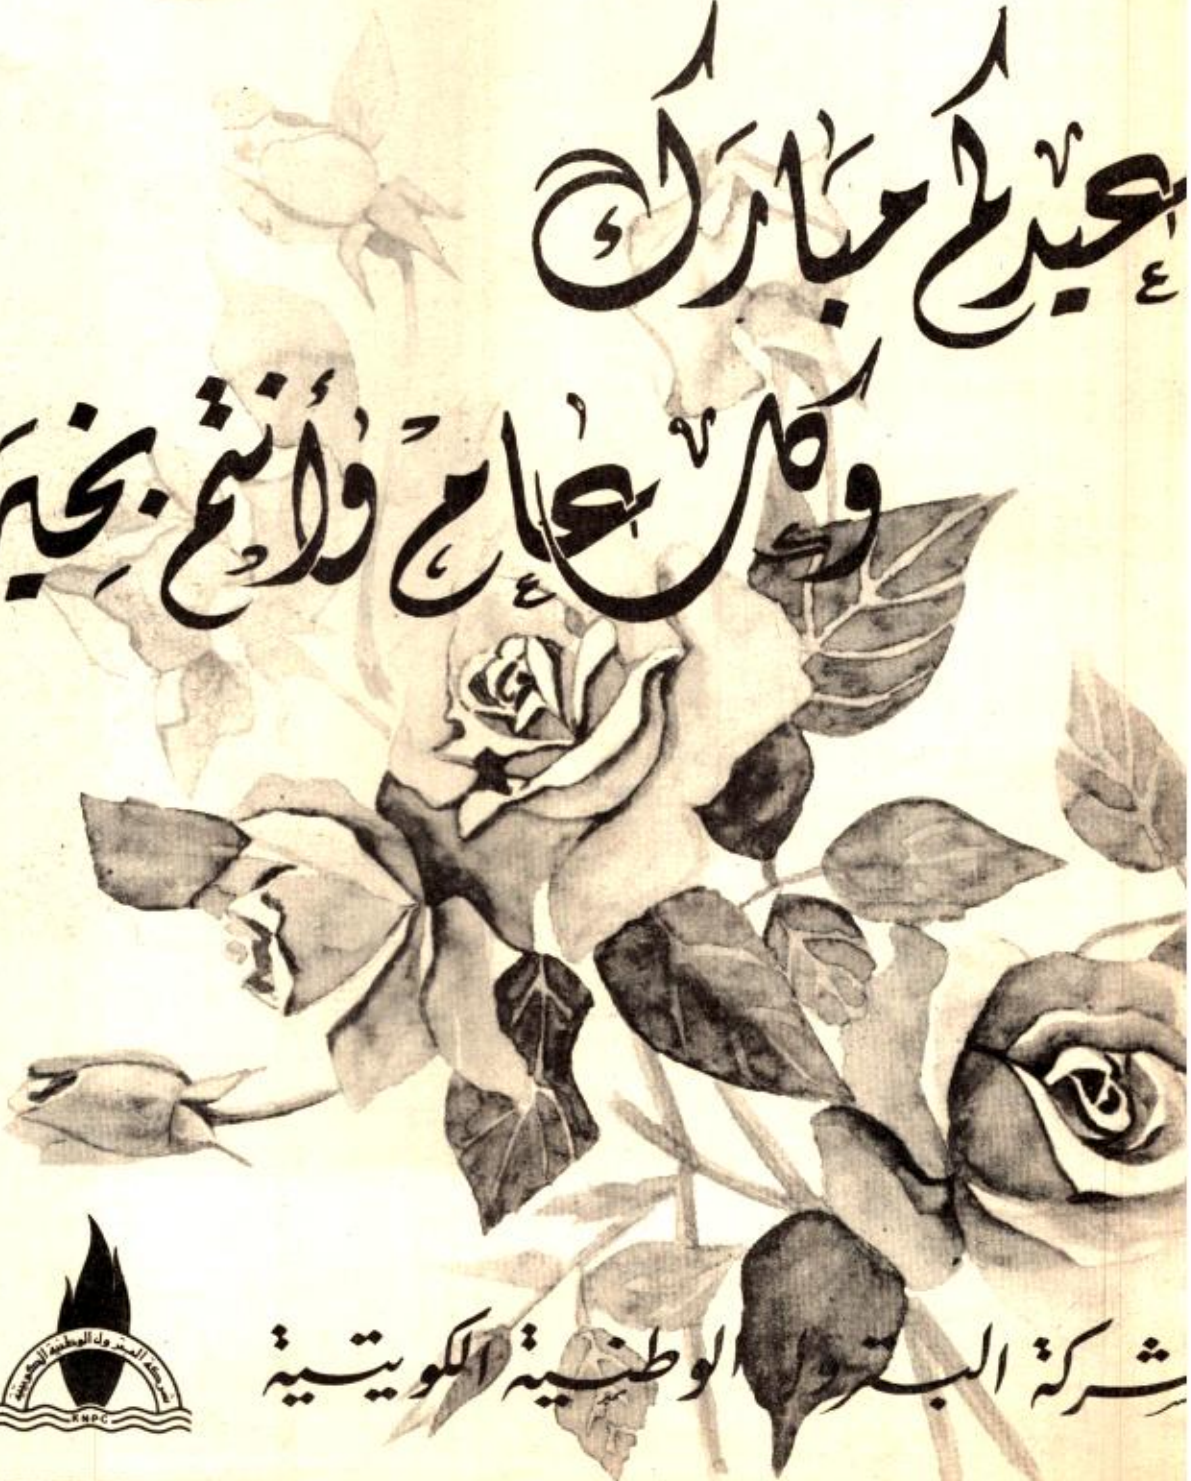 عيدكم مبارك
وكل عام وأنتم بخير
شركة البترول الوطنية الكويتية
شركة البترول الوطنية الكويتية
KNPC